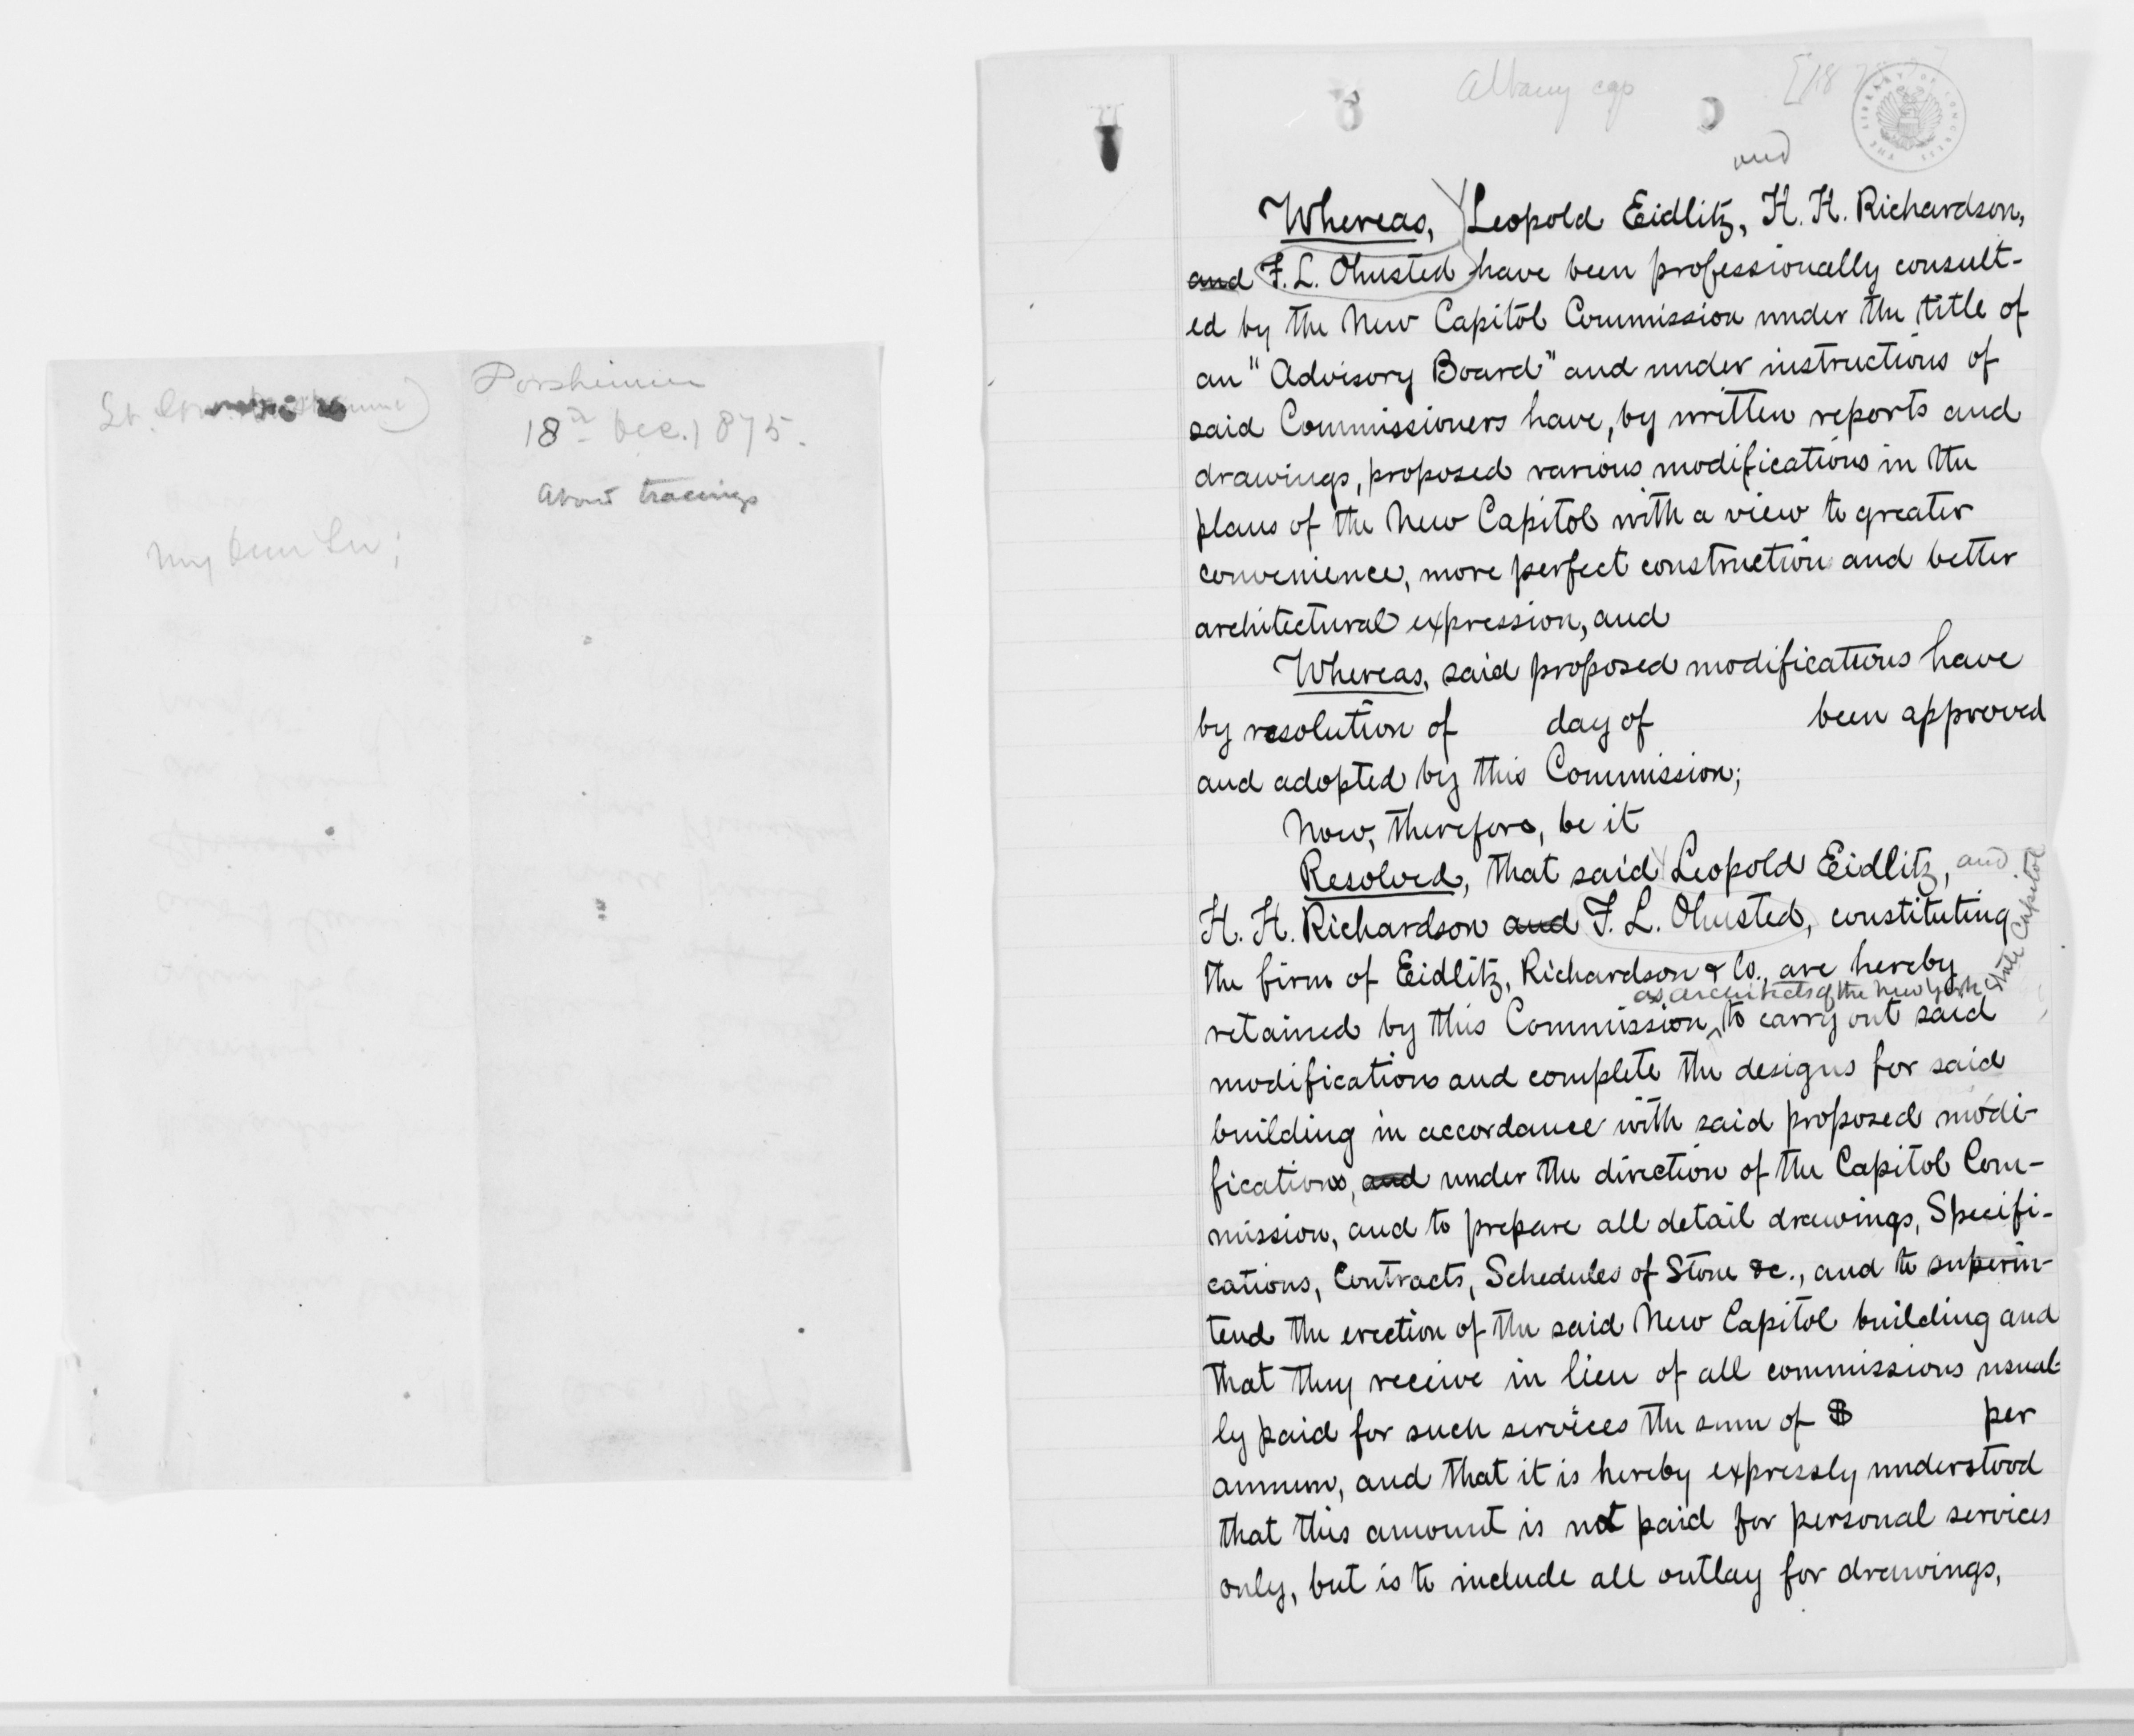 Dorsheimer
18th Dec. 1875.
About tracings
My Dear Sir;
Albany cap
[187
THE LIBRARY OF CONGRESS
and
Whereas, Leopold Eidlitz, H. H. Richardson,
and F. L. Olmsted have been professionally consult-
ed by the New Capitol Commission under the title of
an "Advisory Board" and under instructions of
said Commissioners have, by written reports and
drawings, proposed various modifications in the
plans of the New Capitol with a view to greater
convenience, more perfect construction and better
architectural expression, and
Whereas, said proposed modifications have
by resolution of day of been approved
and adopted by this Commission;
Now, therefore, be it
Resolved, that said Leopold Eidlitz, and
H. H. Richardson and F. L. Olmsted, constituting
the firm of Eidlitz, Richardson & Co., are hereby
as architects of the New York State Capitol
retained by this Commission, to carry out said
modifications and complete the designs for said
building in accordance with said proposed modi-
fications, and under the direction of the Capitol Com-
mission, and to prepare all detail drawings, Specifi-
cations, Contracts, Schedules of Stone &c., and to superin-
tend the erection of the said New Capitol building and
that they receive in lieu of all commissions usual-
ly paid for such services the sum of $ per
annum, and that it is hereby expressly understood
that this amount is not paid for personal services
only, but is to include all outlay for drawings,